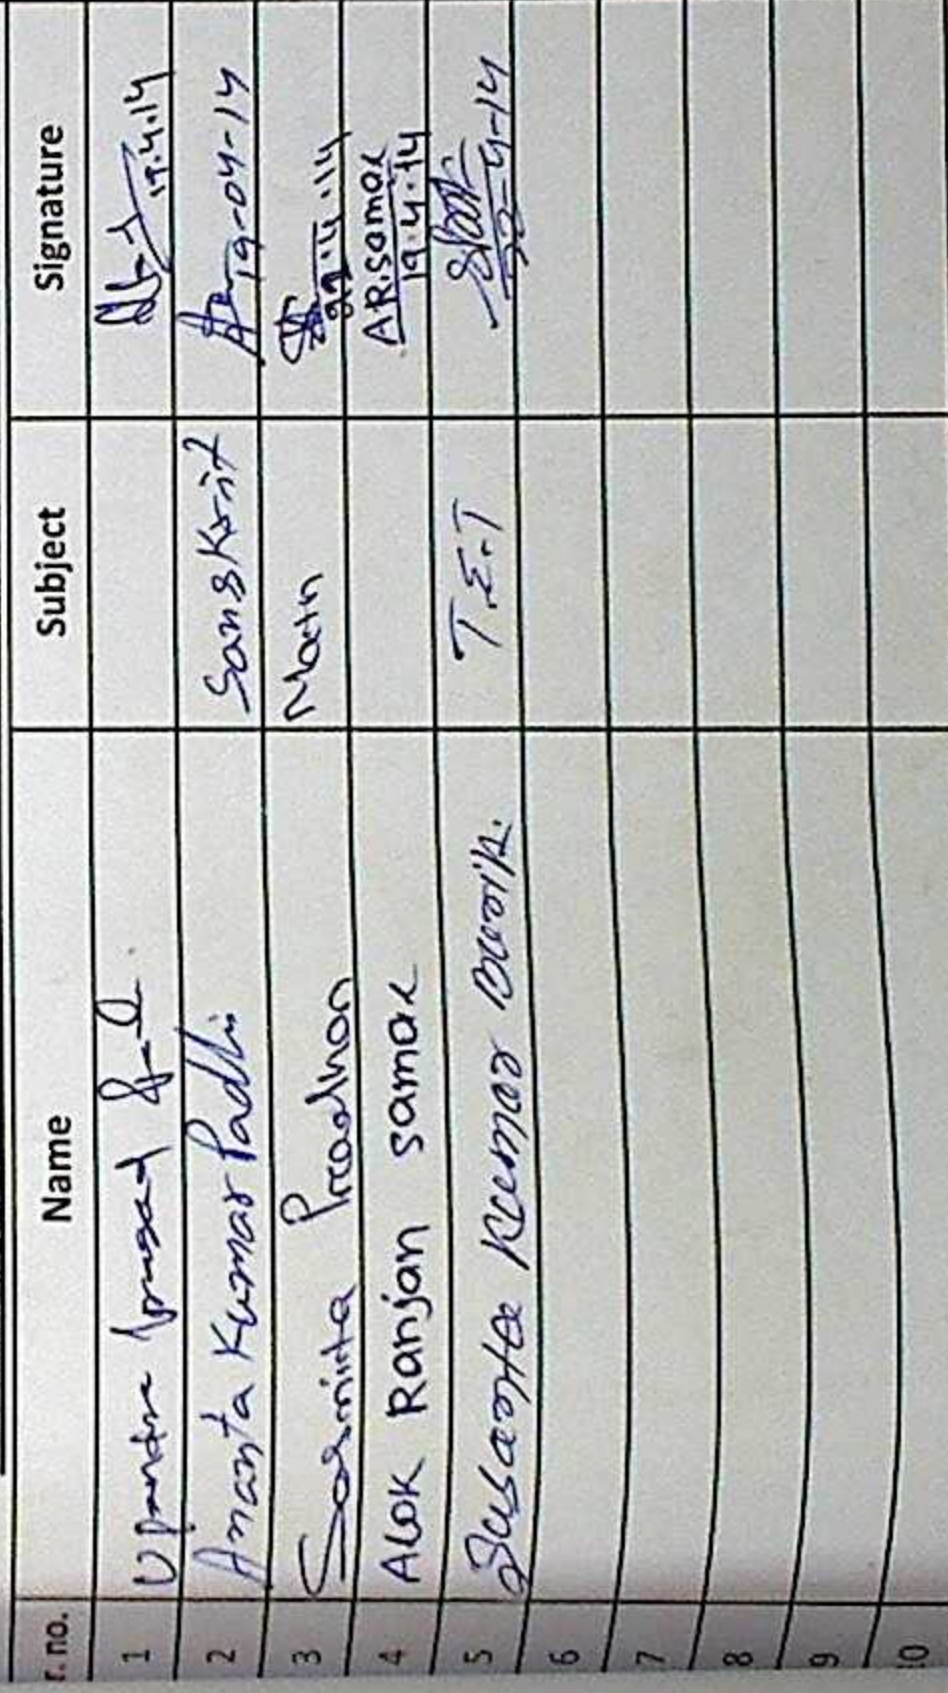 r. no. Name Subject Signature
1 Upendra prasad 19.4.14
2 Ananta Kumar Padhi Sanskrit 19-04-14
3 Pradhan Math
4 Alok Ranjan samal A R. samal
19.4.14
5 Susanta Kumar Barik. T.E.T
6
7
8
9
10